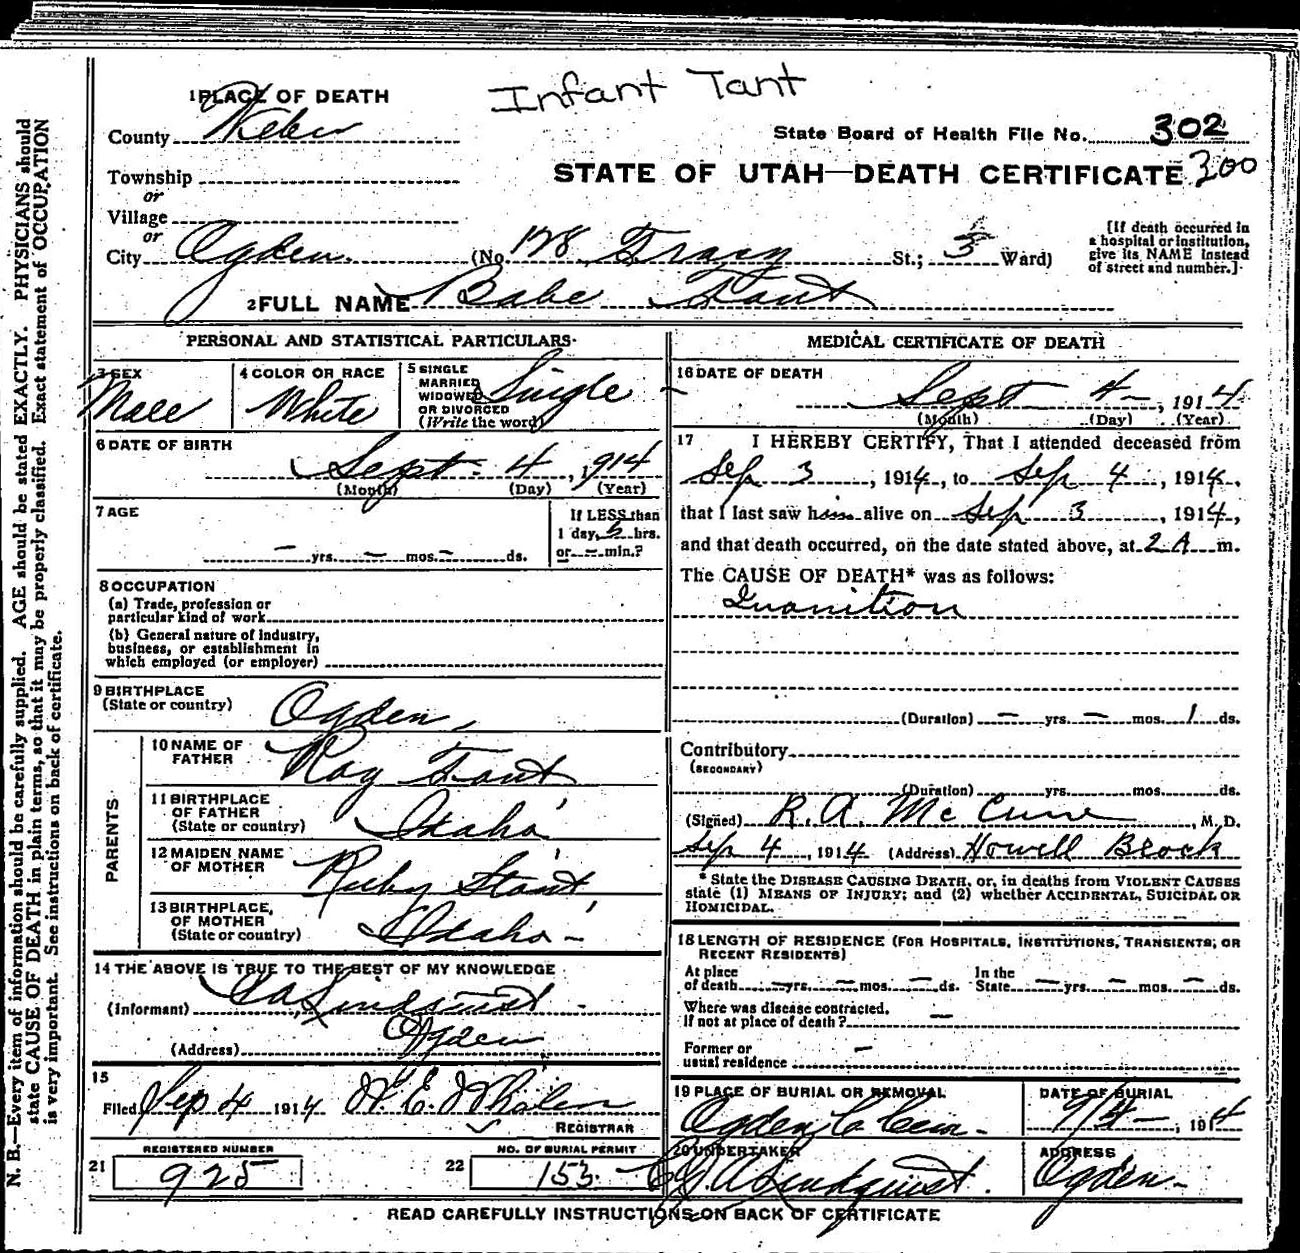 Infant Tant
1 PLACE OF DEATH
County Weber
State Board of Health File No. 302
300
Township
or
Village
or
STATE OF UTAH—DEATH CERTIFICATE
City Ogden (No. 128 Tracy St.; 5 Ward)
[If death occurred in
a hospital or institution,
give its NAME instead
of street and number.]
2 FULL NAME Babe Tant
PERSONAL AND STATISTICAL PARTICULARS
3 SEX
Male
4 COLOR OR RACE
White
5 SINGLE
MARRIED
WIDOWED
OR DIVORCED
(Write the word)
Single
6 DATE OF BIRTH
Sept. 4, 1914
(Month) (Day) (Year)
7 AGE
— yrs. — mos. — ds.
If LESS than
1 day, 5 hrs.
or — min.?
8 OCCUPATION
(a) Trade, profession or
particular kind of work
(b) General nature of industry,
business, or establishment in
which employed (or employer)
9 BIRTHPLACE
(State or country)
Ogden,
PARENTS
10 NAME OF
FATHER
Ray Tant
11 BIRTHPLACE
OF FATHER
(State or country)
Idaho
12 MAIDEN NAME
OF MOTHER
Ruby
13 BIRTHPLACE,
OF MOTHER
(State or country)
Idaho —
14 THE ABOVE IS TRUE TO THE BEST OF MY KNOWLEDGE
(Informant) Lindquist
(Address) Ogden
15
Filed Sep 4 1914 H. E. Whalen
REGISTRAR
REGISTERED NUMBER
21 925
NO. OF BURIAL PERMIT
22 153
MEDICAL CERTIFICATE OF DEATH
16 DATE OF DEATH
Sept 4 —, 1914
(Month) (Day) (Year)
17 I HEREBY CERTIFY, That I attended deceased from
Sep 3, 1914, to Sep 4, 1914.
that I last saw him alive on Sep 3, 1914,
and that death occurred, on the date stated above, at 2 A m.
The CAUSE OF DEATH* was as follows:
Inanition
(Duration) — yrs. — mos. 1 ds.
Contributory
(SECONDARY)
(Duration) yrs. mos. ds.
(Signed) R. A. McCune, M. D.
Sep 4, 1914 (Address) Howell Block
* State the DISEASE CAUSING DEATH, or, in deaths from VIOLENT CAUSES
state (1) MEANS OF INJURY; and (2) whether ACCIDENTAL, SUICIDAL OR
HOMICIDAL.
18 LENGTH OF RESIDENCE (FOR HOSPITALS, INSTITUTIONS, TRANSIENTS, OR
RECENT RESIDENTS)
At place
of death — yrs. — mos. — ds.
In the
State — yrs. — mos. — ds.
Where was disease contracted,
If not at place of death? —
Former or
usual residence —
19 PLACE OF BURIAL OR REMOVAL
Ogden C Cem.
DATE OF BURIAL
9/4 —, 1914
20 UNDERTAKER
Lindquist.
ADDRESS
Ogden —
READ CAREFULLY INSTRUCTIONS ON BACK OF CERTIFICATE
N. B.—Every item of information should be carefully supplied. AGE should be stated EXACTLY. PHYSICIANS should
state CAUSE OF DEATH in plain terms, so that it may be properly classified. Exact statement of OCCUPATION
is very important. See instructions on back of certificate.